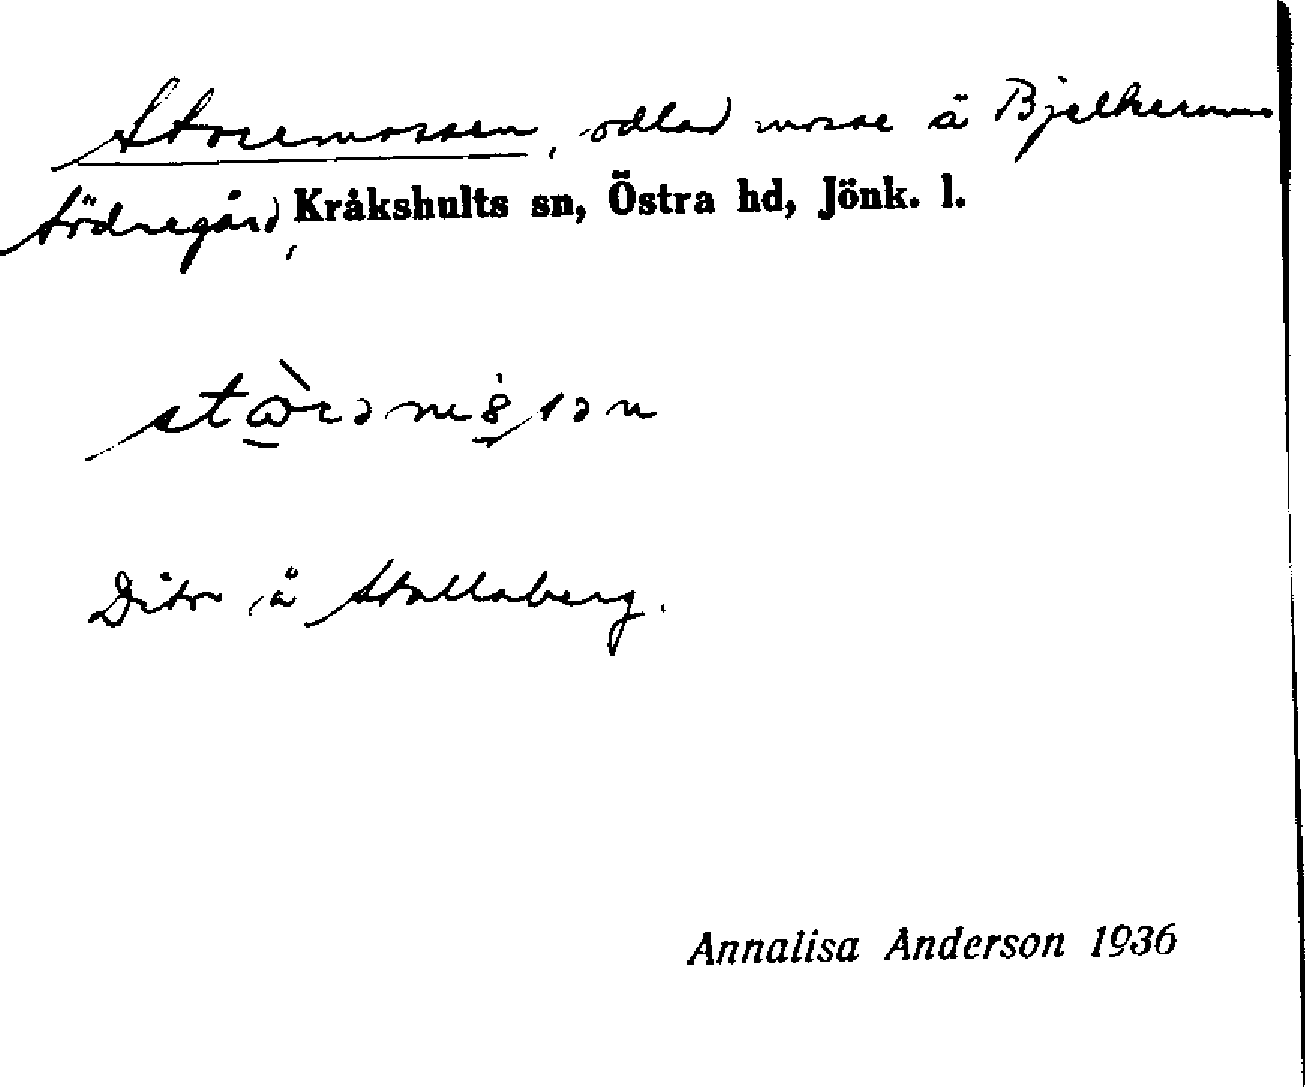 Storemossen, odlad mosse å Bjelkerums
södregård, Kråkshults sn, Östra hd, Jönk. l.
Dito å Stallaberg.
Annalisa Anderson 1936